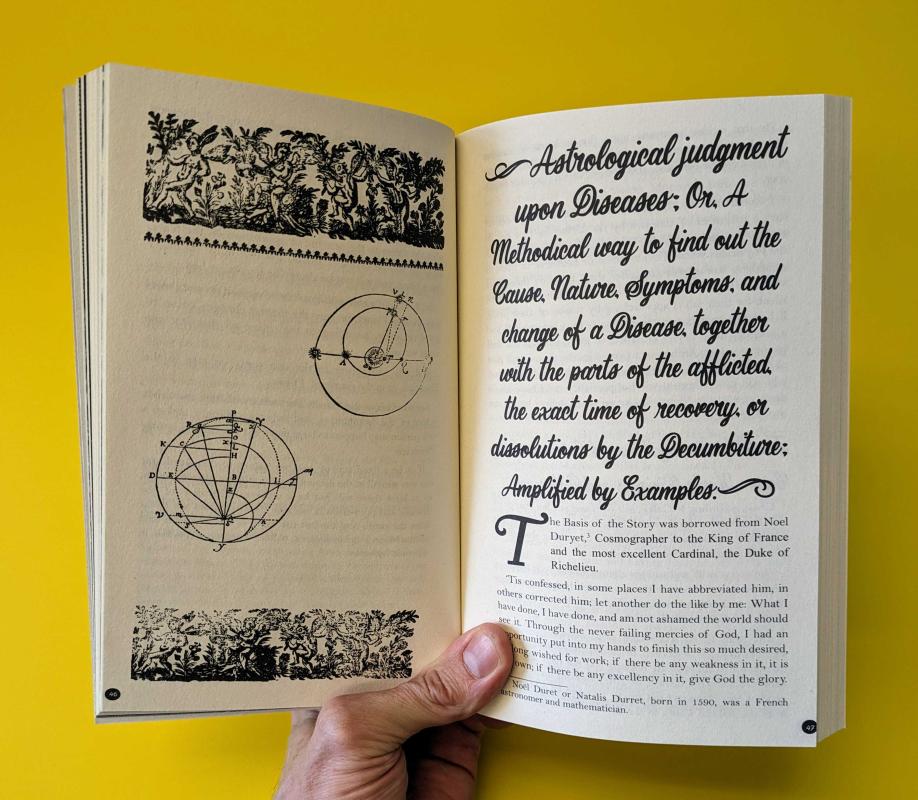 46
Astrological judgment
upon Diseases; Or, A
Methodical way to find out the
Cause, Nature, Symptoms, and
change of a Disease, together
with the parts of the afflicted,
the exact time of recovery, or
dissolutions by the Decumbiture;
Amplified by Examples.
The Basis of the Story was borrowed from Noel
Duryet,³ Cosmographer to the King of France
and the most excellent Cardinal, the Duke of
Richelieu.
'Tis confessed, in some places I have abbreviated him, in
others corrected him; let another do the like by me: What I
have done, I have done, and am not ashamed the world should
see it. Through the never failing mercies of God, I had an
opportunity put into my hands to finish this so much desired,
long wished for work; if there be any weakness in it, it is
own; if there be any excellency in it, give God the glory.
Noël Duret or Natalis Durret, born in 1590, was a French
astronomer and mathematician.
47